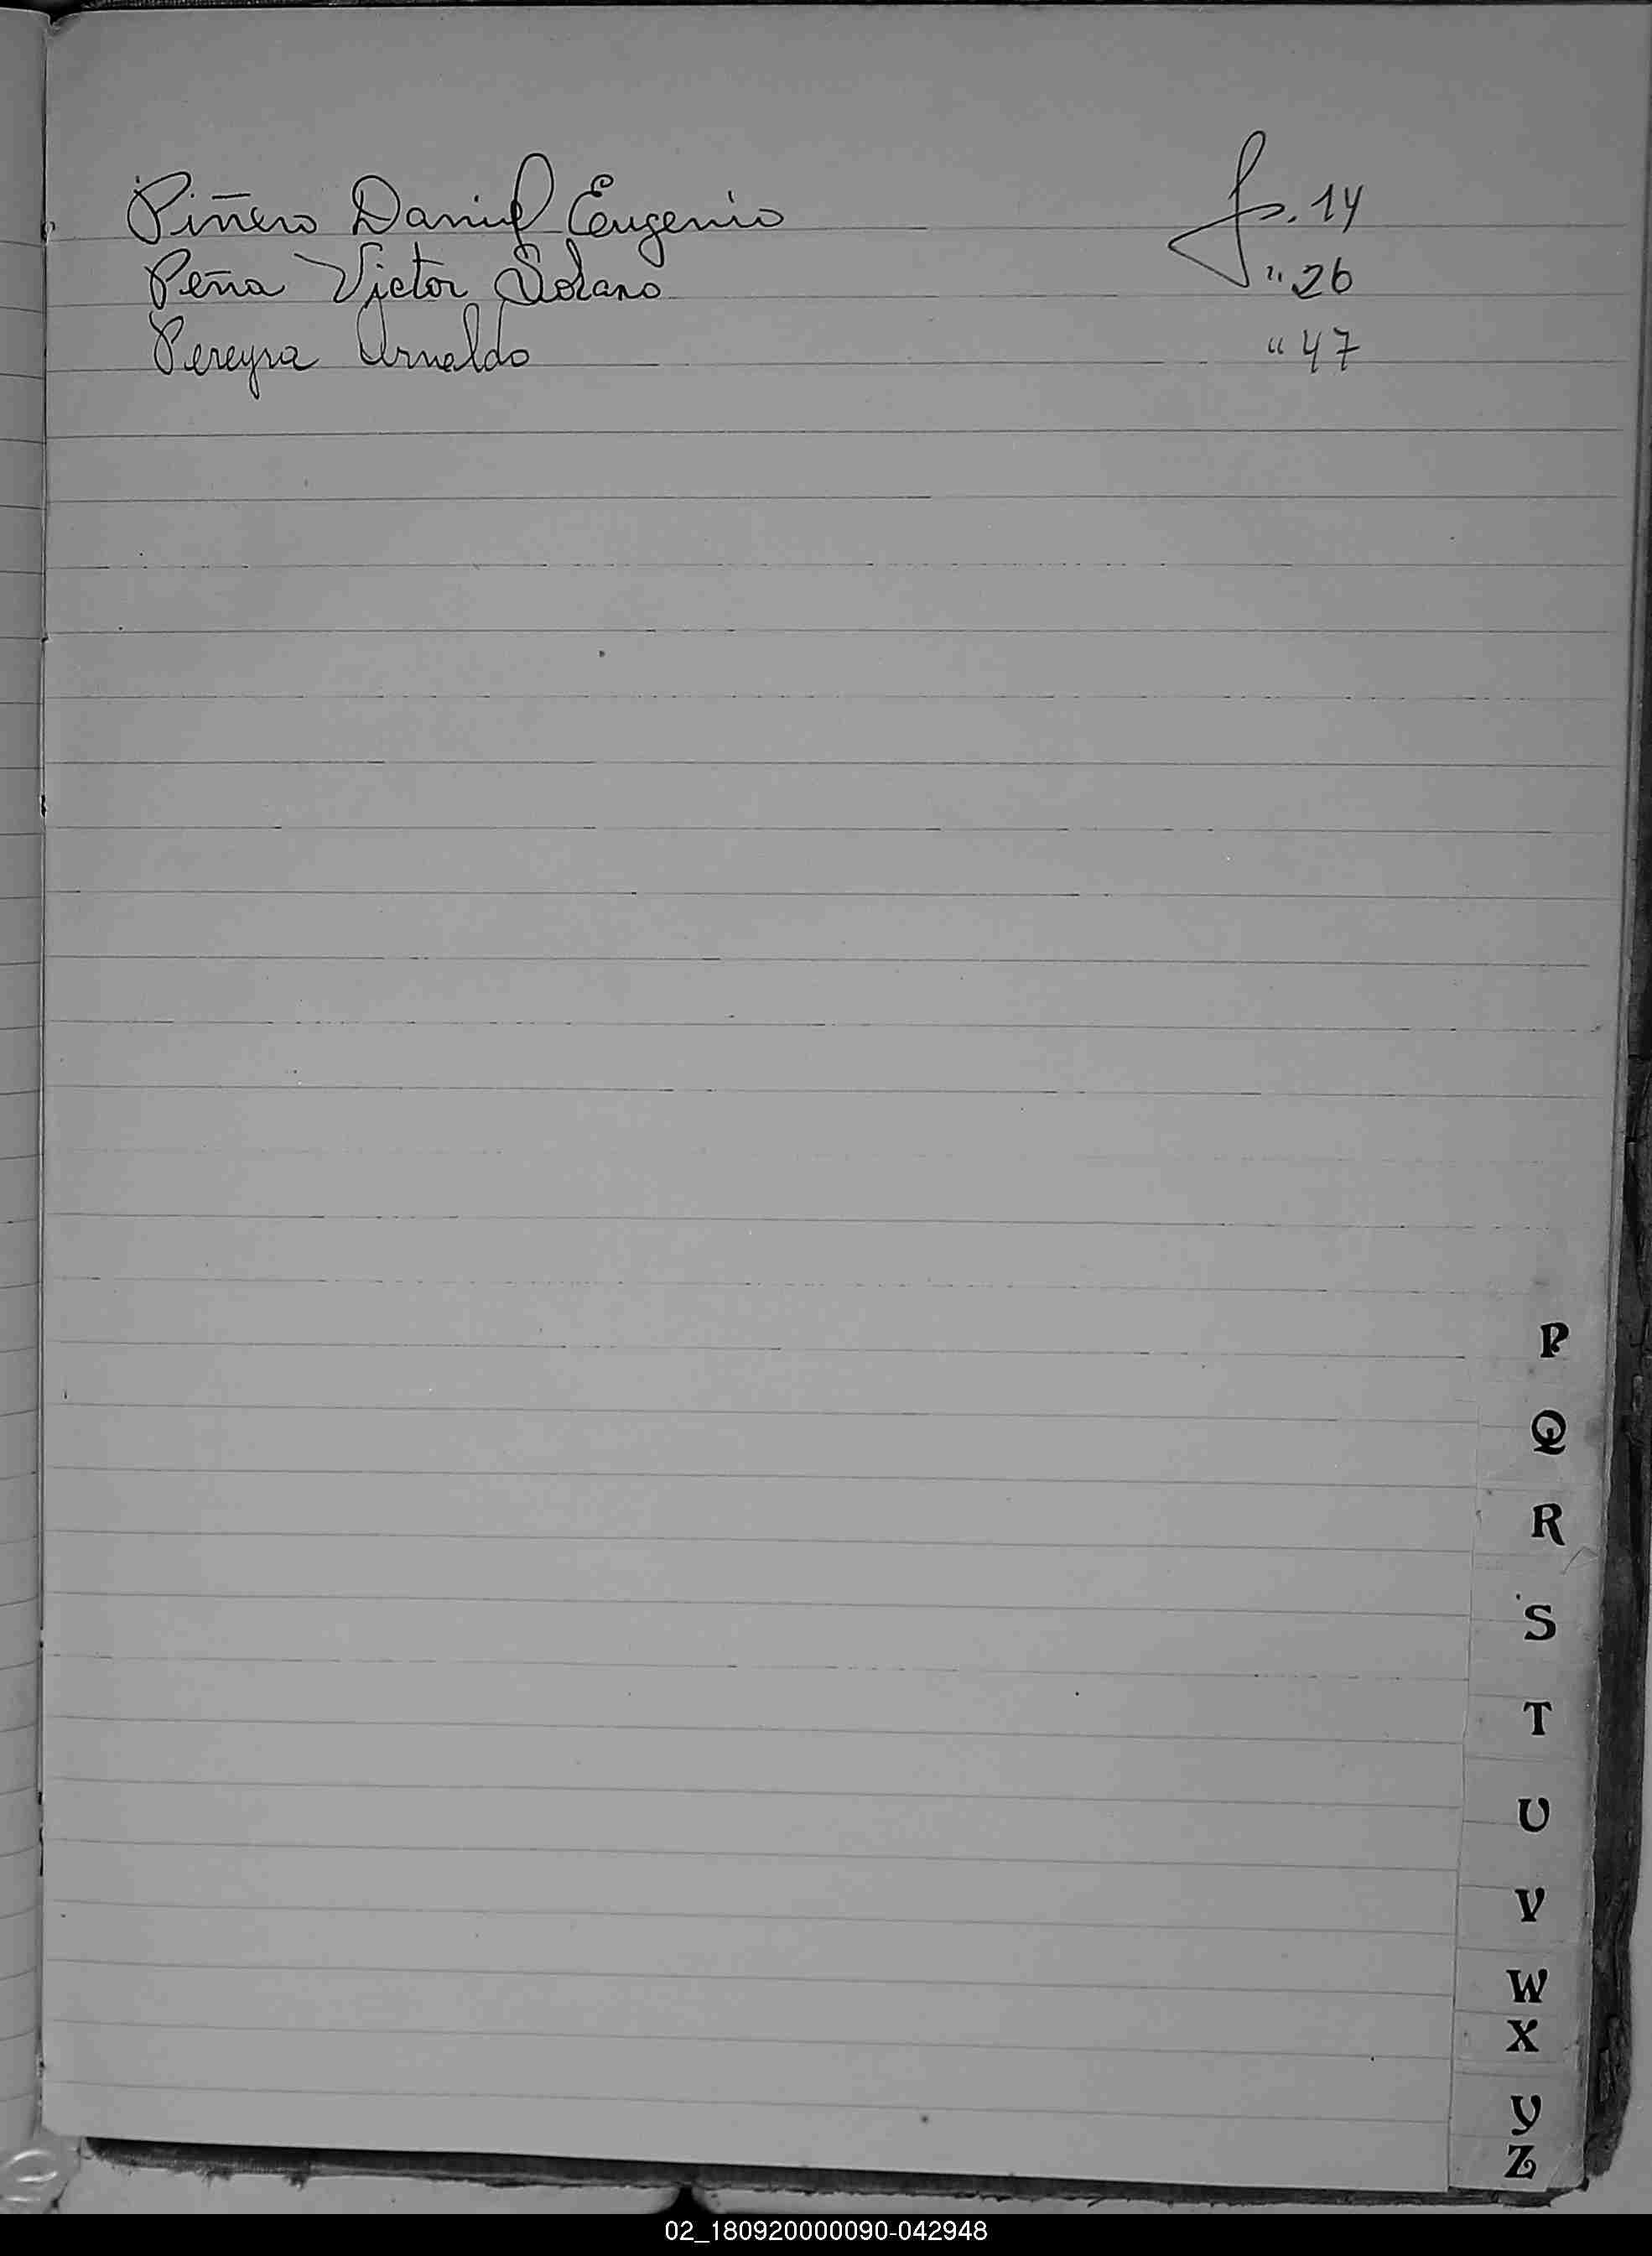 Piñero Daniel Eugenio fs. 14
Peña Victor Solano " 26
Pereyra Arnaldo " 47
P
Q
R
S
T
U
V
W
X
Y
Z
02_180920000090-042948